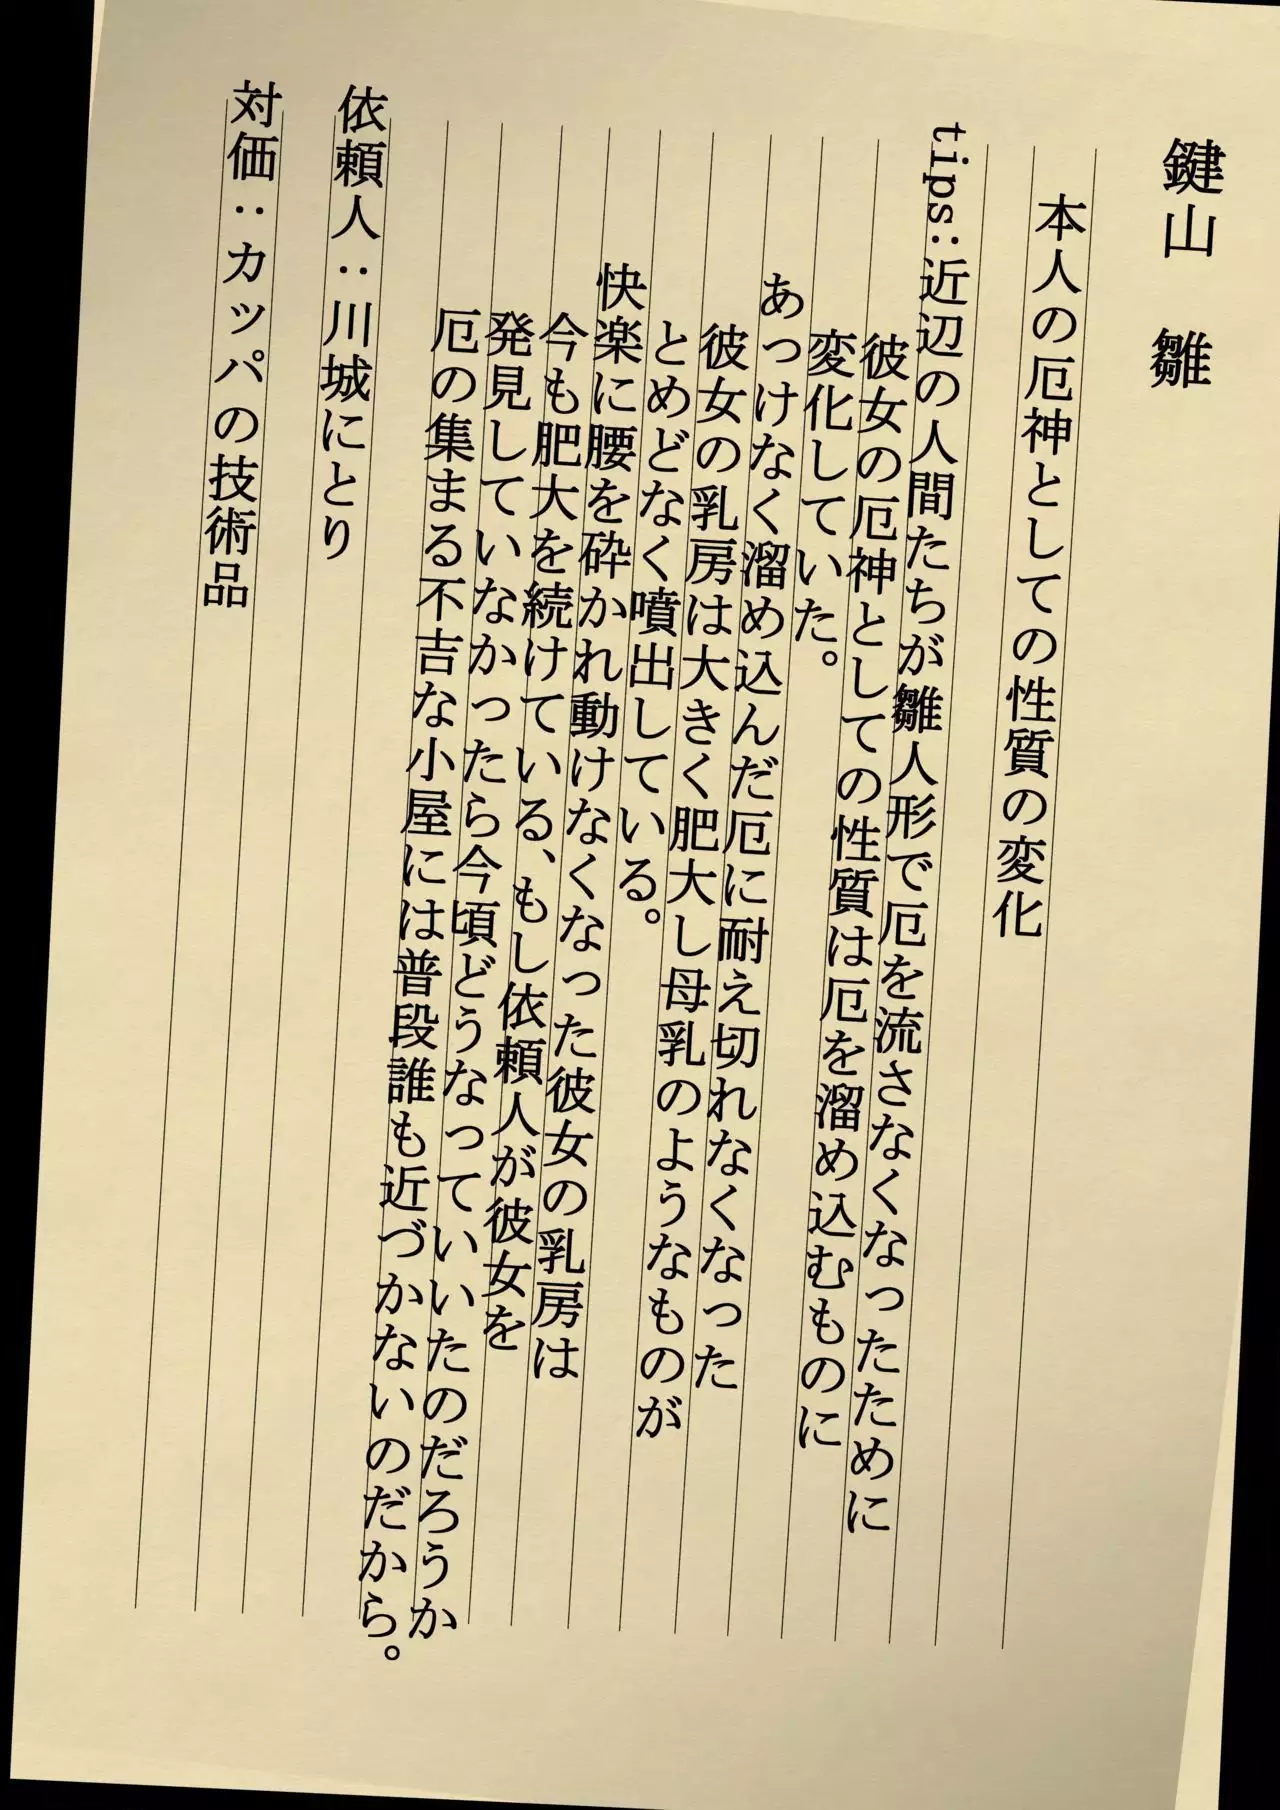 鍵山　雛
本人の厄神としての性質の変化
tips:近辺の人間たちが雛人形で厄を流さなくなったために
彼女の厄神としての性質は厄を溜め込むものに
変化していた。
あっけなく溜め込んだ厄に耐え切れなくなった
彼女の乳房は大きく肥大し母乳のようなものが
とめどなく噴出している。
快楽に腰を砕かれ動けなくなった彼女の乳房は
今も肥大を続けている、もし依頼人が彼女を
発見していなかったら今頃どうなっていいたのだろうか
厄の集まる不吉な小屋には普段誰も近づかないのだから。
依頼人：川城にとり
対価：カッパの技術品